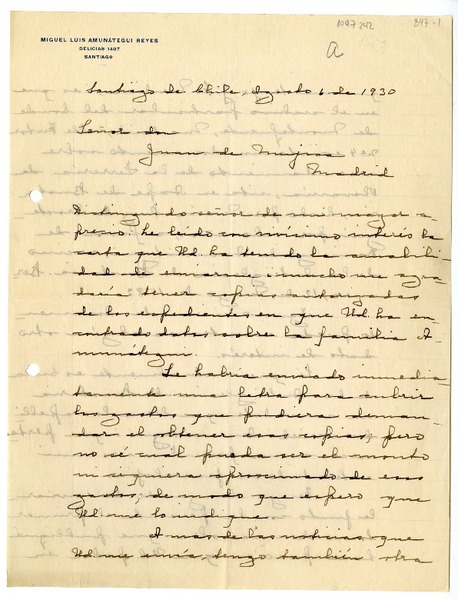 1097242
297-1
a
MIGUEL LUIS AMUNÁTEGUI REYES
DELICIAS 1407
SANTIAGO
Santiago de Chile, Agosto 6 de 1930
Señor don
Juan de
Madrid
Distinguido señor de mi mayor a-
precio: he leído con vivísimo interés la
carta que Ud. ha tenido la amabili-
dad de enviarme, i de hecho me agra-
daría tener copias autorizadas
de los espedientes en que Ud. ha en-
contrado datos sobre la familia A-
munátegui.
Le habría enviado inmedia-
tamente una letra para cubrir
los gastos que pudiera deman-
dar el obtener esas copias, pero
no sé cual pueda ser el monto
ni siquiera aproximado de esos
gastos, de modo que espero que
Ud. me lo indique.
A mas de las noticias que
Ud. me envía, tengo también otra